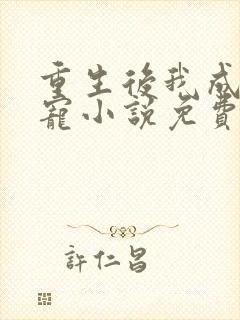 重生後我成
寵小說免費
許仁昌